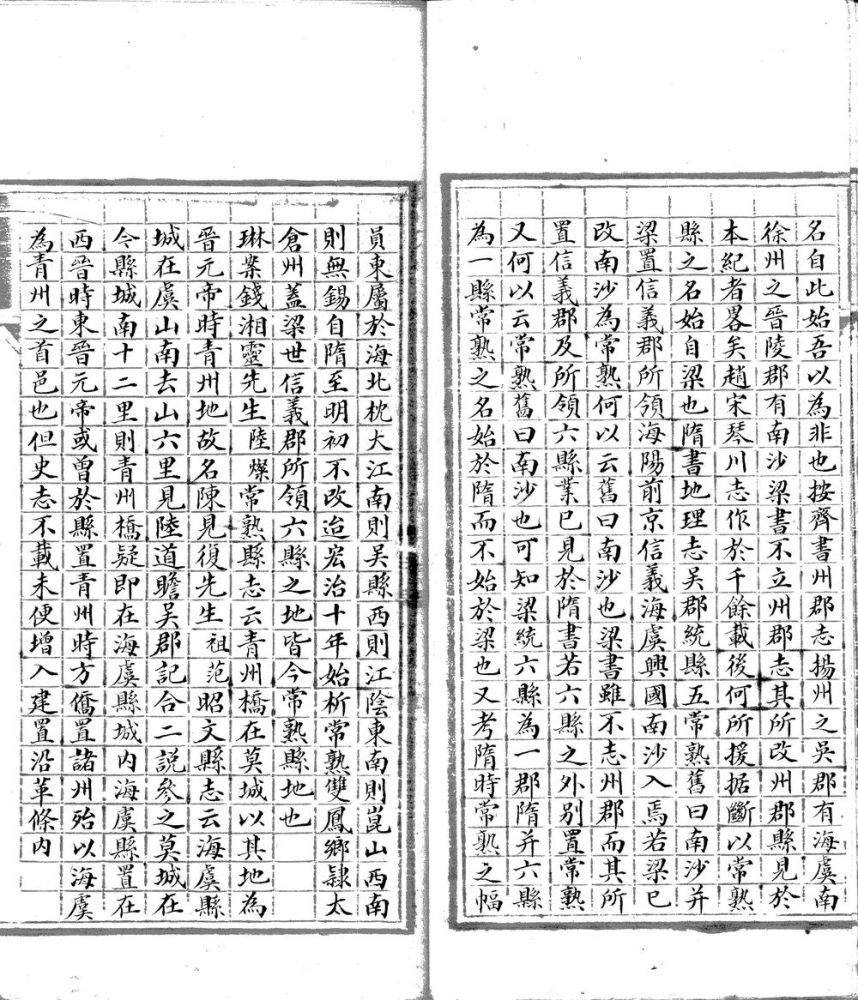 名自此始吾以為非也按齊書州郡志揚州之吳郡有海虞南
徐州之晉陵郡有南沙梁書不立州郡志其所改州郡縣見於
本紀者畧矣趙宋琴川志作於千餘載後何所援据斷以常熟
縣之名始自梁也隋書地理志吳郡統縣五常熟舊曰南沙并
梁置信義郡所領海陽前京信義海虞興國南沙入焉若梁已
改南沙為常熟何以云舊曰南沙也梁書雖不志州郡而其所
置信義郡及所領六縣業已見於隋書若六縣之外別置常熟
又何以云常熟舊曰南沙也可知梁統六縣為一郡隋并六縣
為一縣常熟之名始於隋而不始於梁也又考隋時常熟之幅
員東屬於海北枕大江南則吳縣西則江陰東南則崑山西南
則無錫自隋至明初不改迨宏治十年始析常熟雙鳳鄉隸太
倉州蓋梁世信義郡所領六縣之地皆今常熟縣地也
琳案錢湘靈先生陸燦常熟縣志云青州橋在莫城以其地為
晉元帝時青州地故名陳見復先生祖范昭文縣志云海虞縣
城在虞山南去山六里見陸道瞻吳郡記合二說參之莫城在
今縣城南十二里則青州橋疑即在海虞縣城內海虞縣置在
西晉時東晉元帝或曾於縣置青州時方僑置諸州殆以海虞
為青州之首邑也但史志不載未便增入建置沿革條內